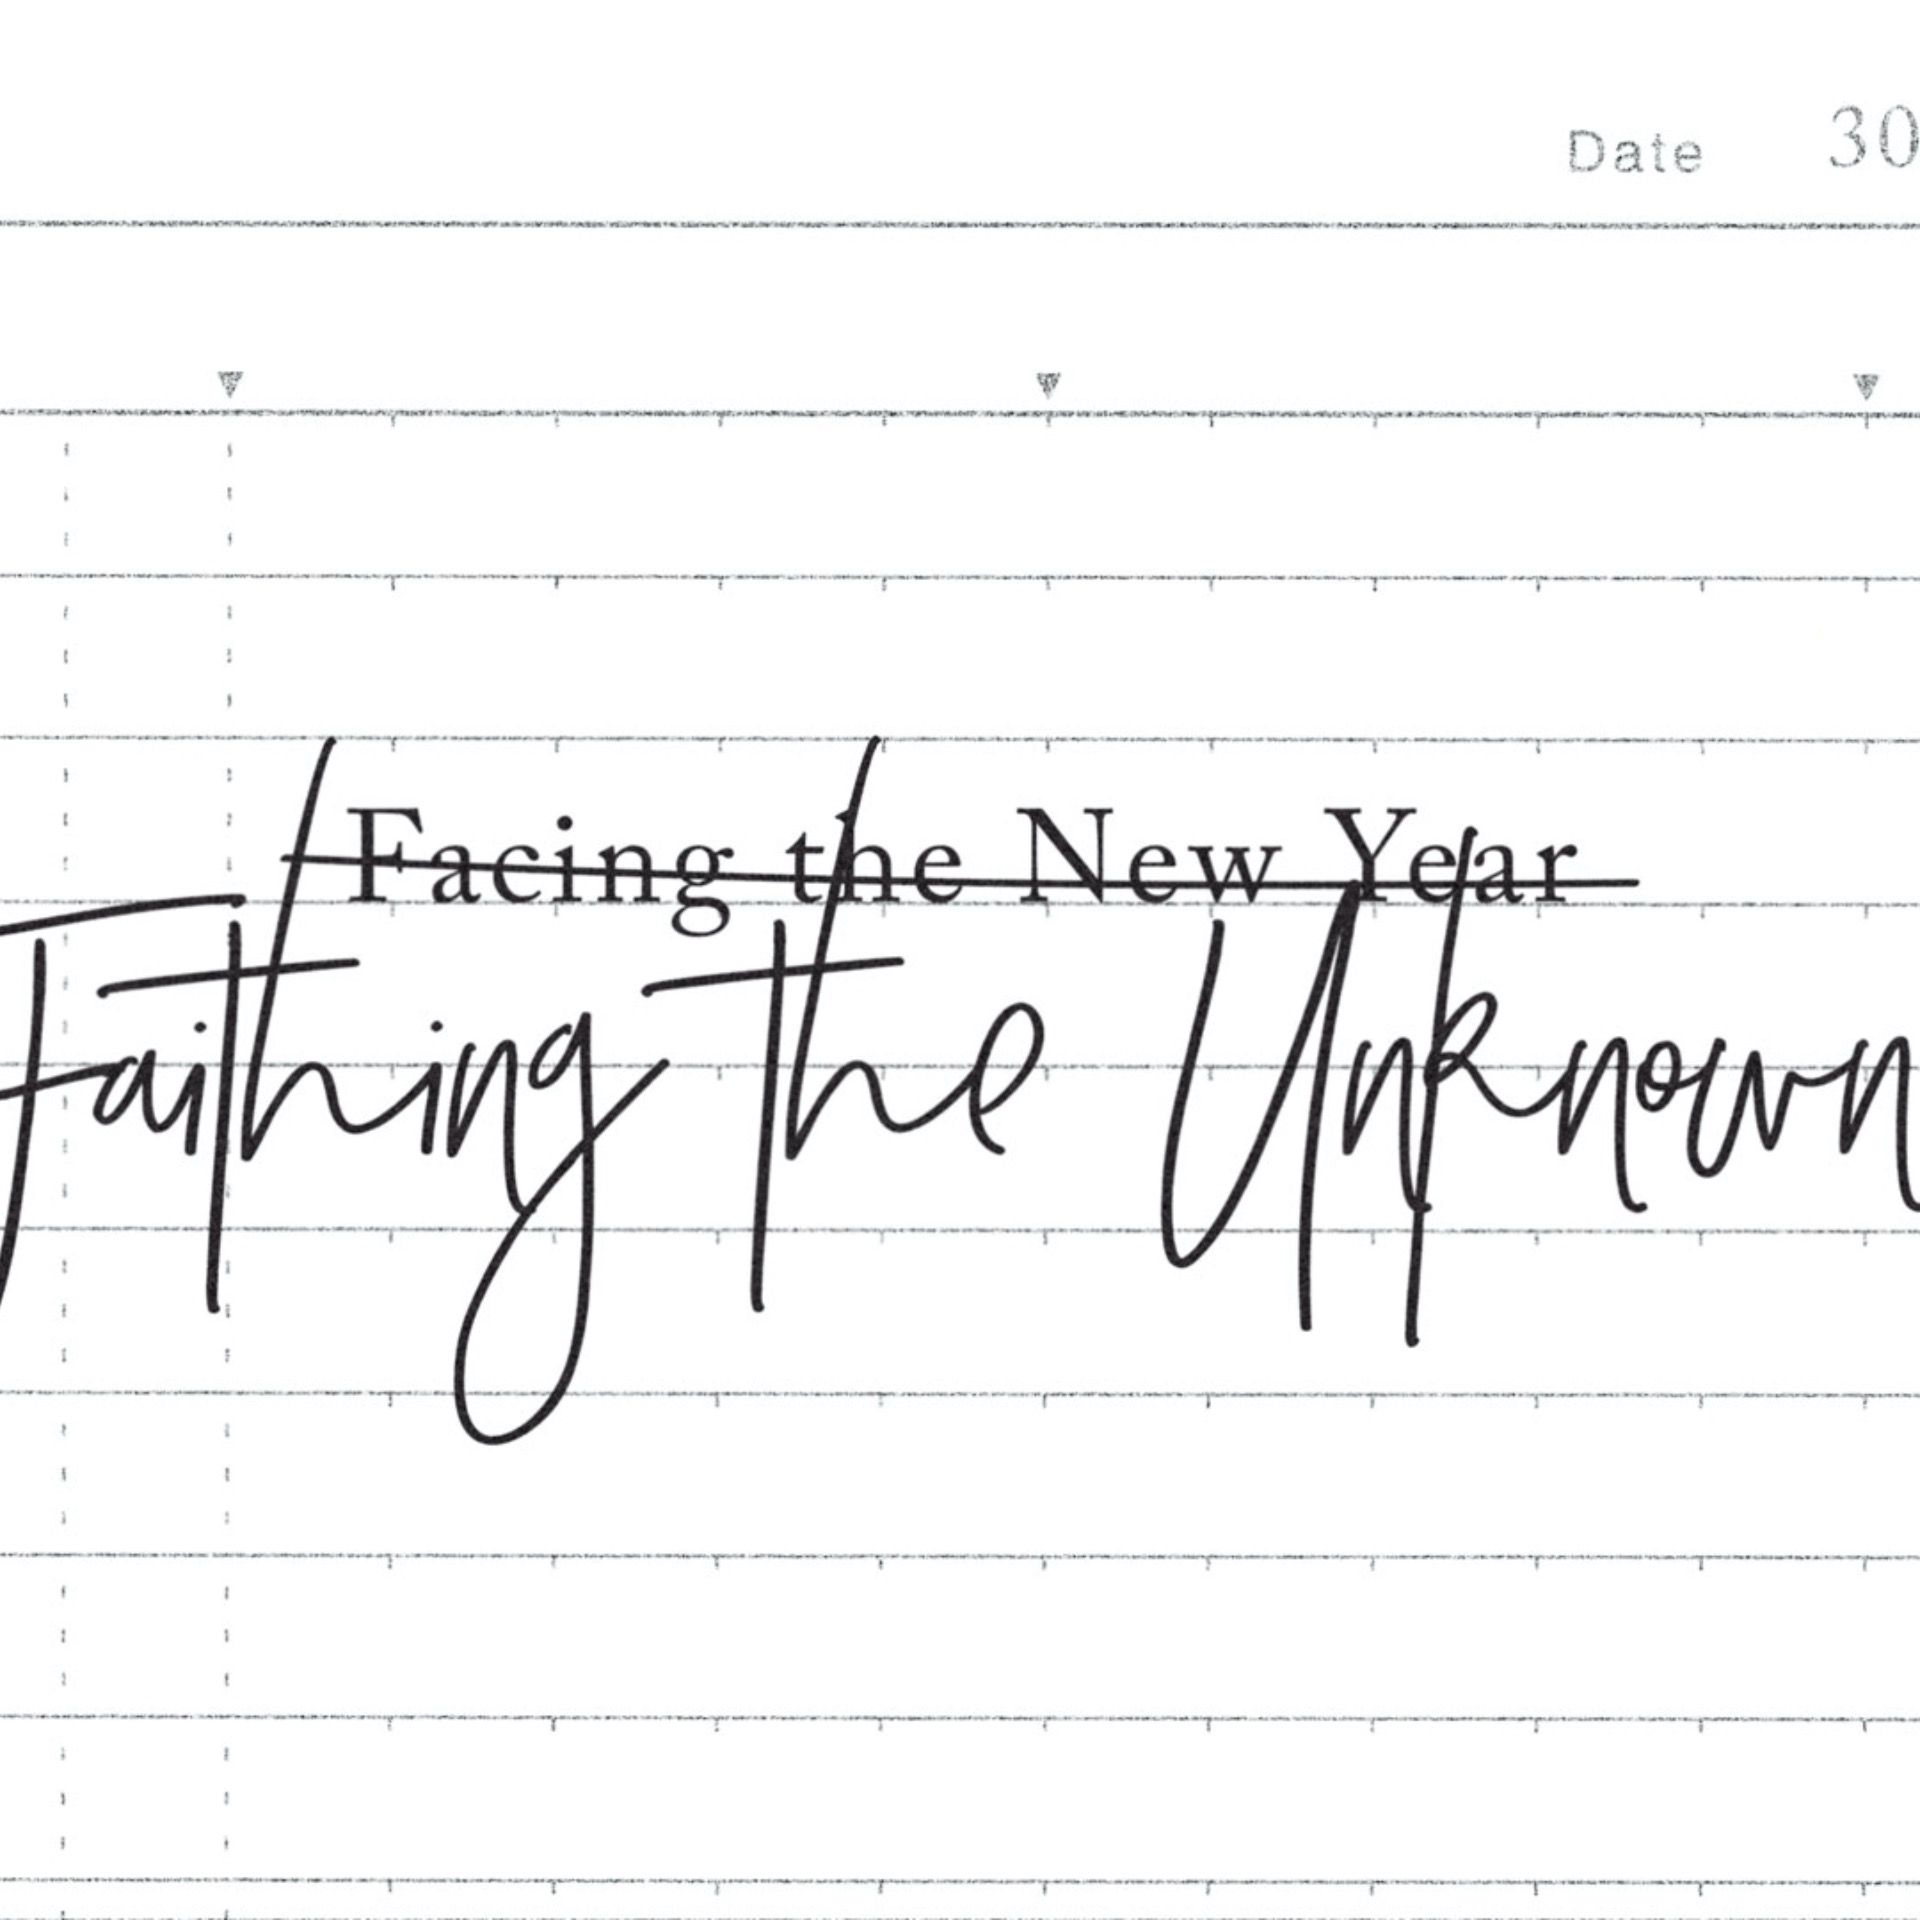 Date 30
Facing the New Year
Faithing the Unknown